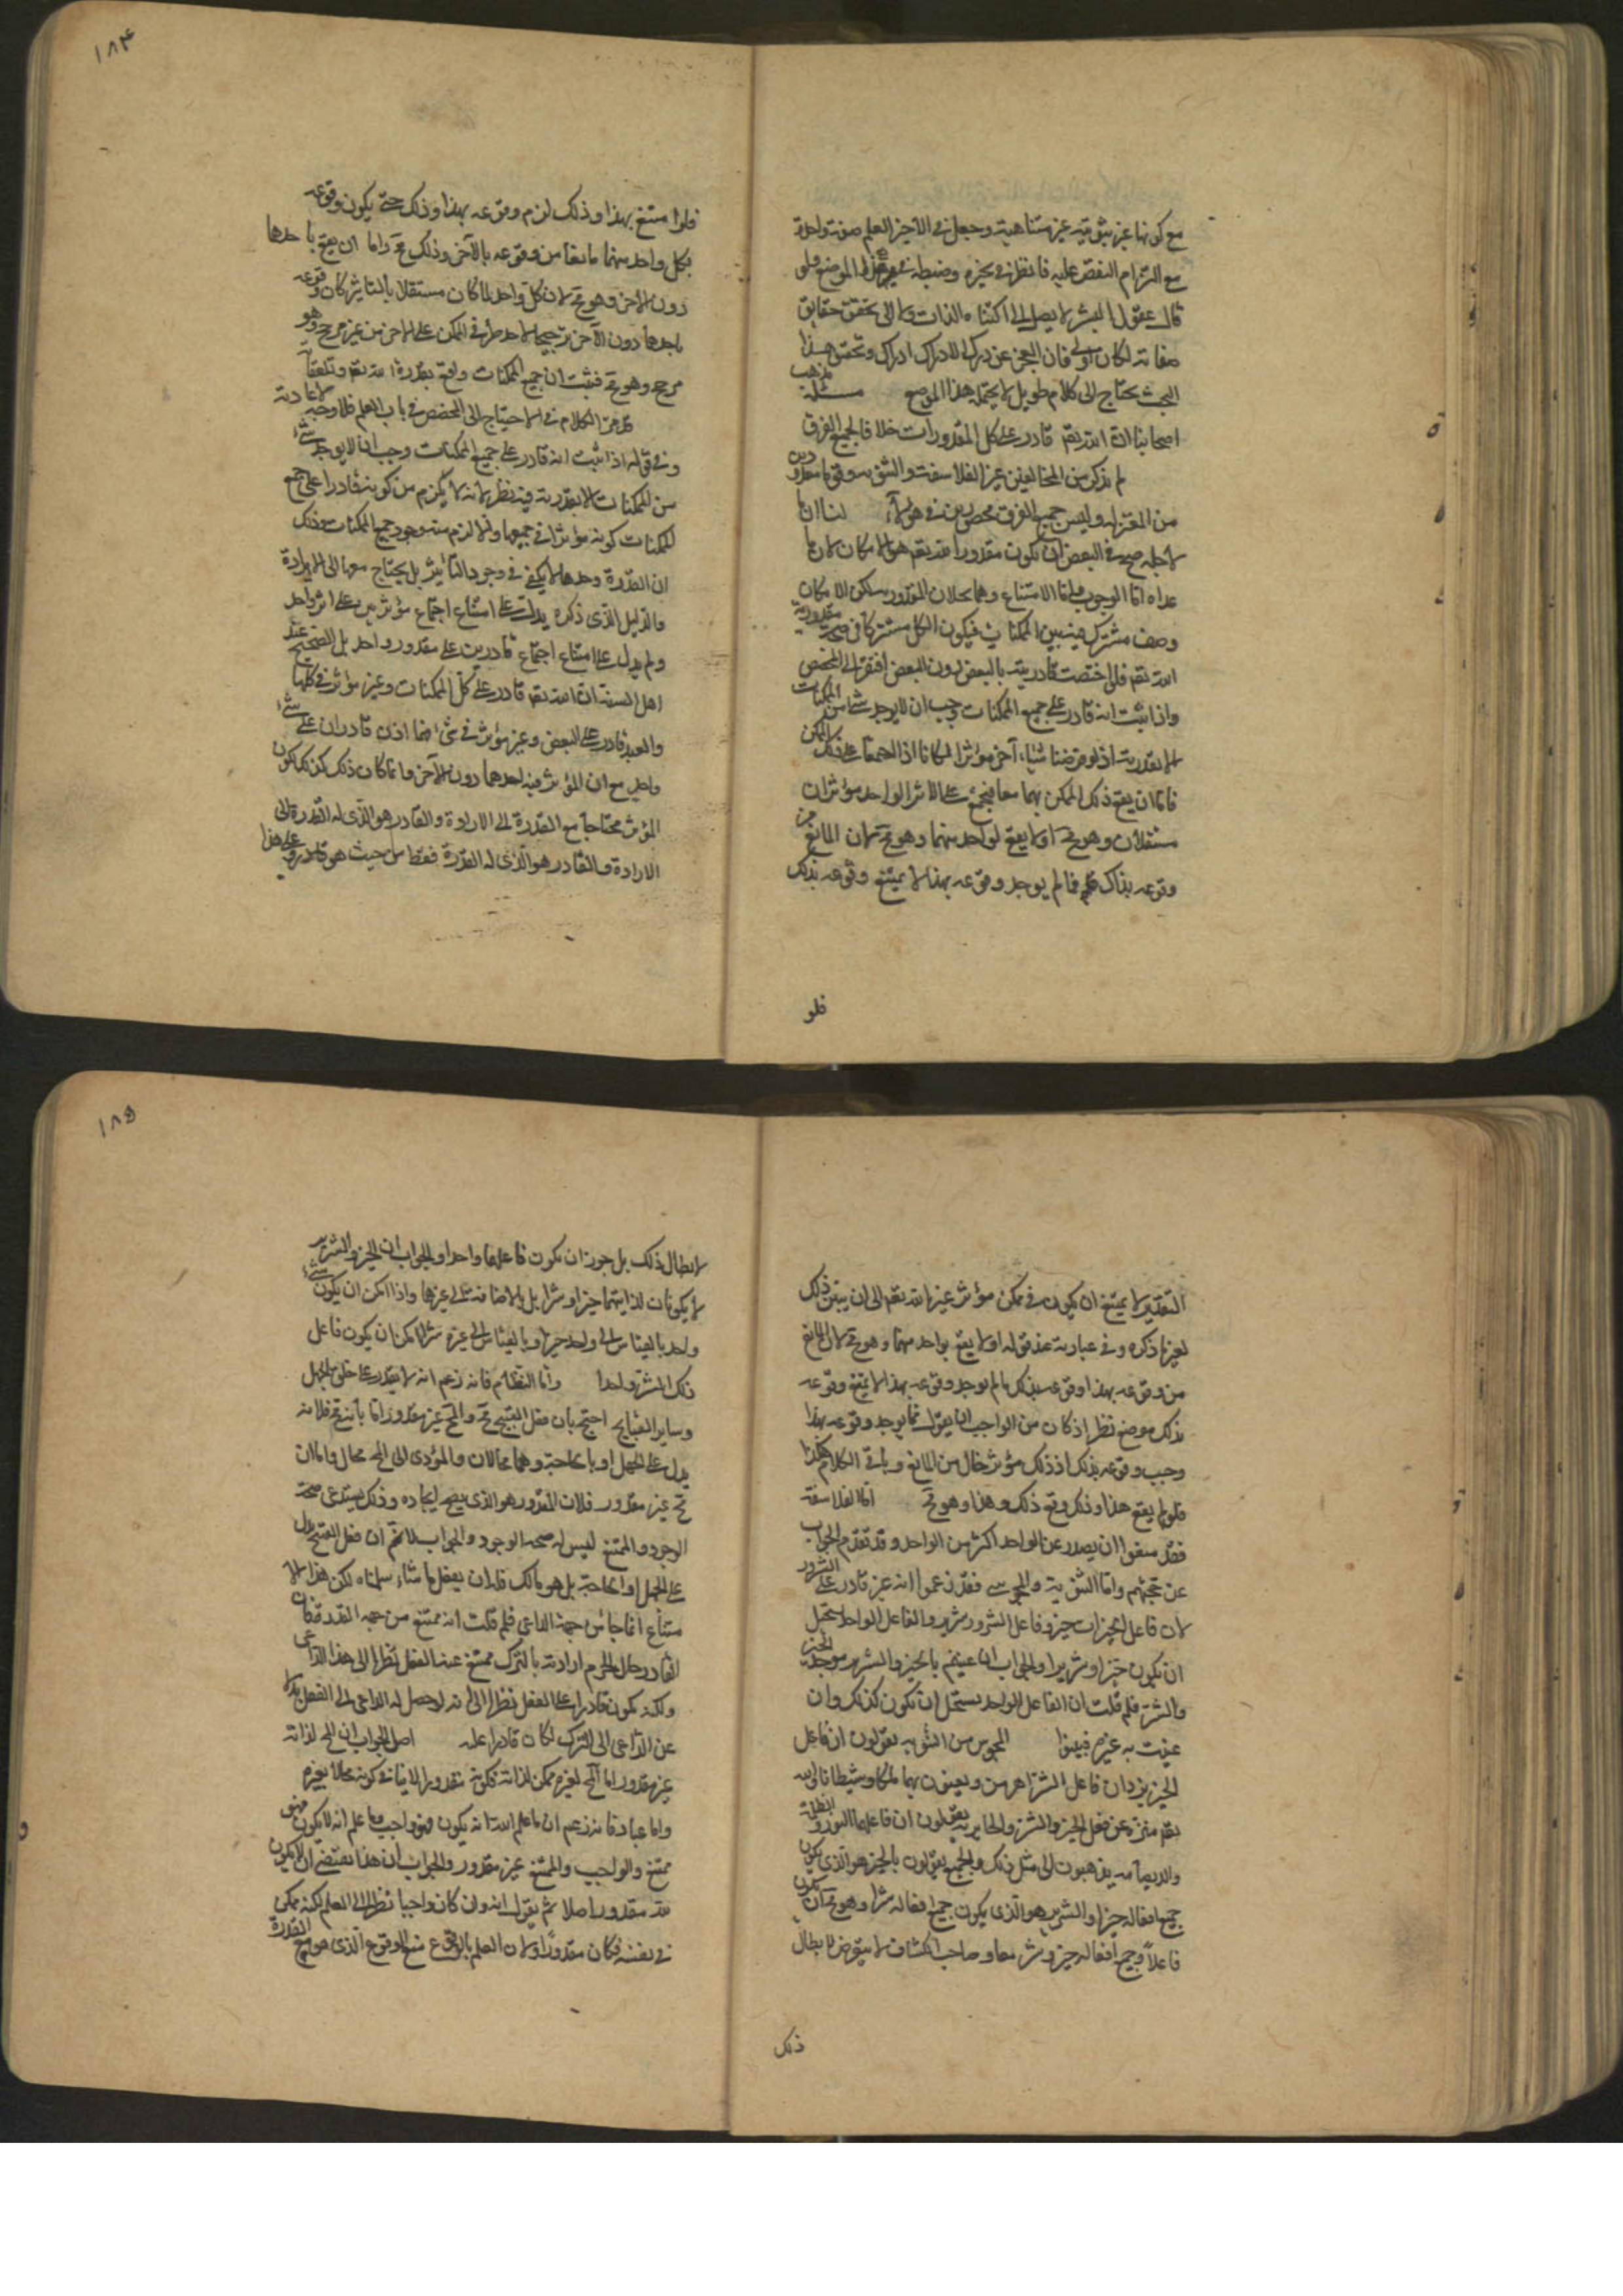 مع كونها غير ثبوتية غير متناهية وجعل في الآخر العلم صفة واحدة
مع التزام النقض عليه فانظر في تحيره وضبطه في هذا الموضع فلو
قال عقول البشر لا يصل إلى اكتناه الذات ولا إلى تحقق حقايق
صفاته لكان أولى فان العجز عن درك الادراك ادراك وتحقق هذا
البحث يحتاج الى كلام طويل لا يحتمله هذا الموضع مسئلة مذهب
اصحابنا ان الله تعـ قادر على كل المقدورات خلافا لجميع الفرق
لم يذكر من المخالفين غير الفلاسفة والثنوية وقوما معدودين
من المعتزلة وليس جميع الفرق محصورين في هؤلاء لنا ان ما
لاجله صح في البعض ان يكون مقدورا لله تعـ هو الامكان لان ما
عداه اما الوجوب واما الامتناع وهما يحيلان المقدورية لكن الامكان
وصف مشترك فيه بين الممكنات فيكون الكل مشتركا في صحة مقدورية
الله تعـ فلو اختصت قادريته بالبعض دون البعض افتقر الى المخصص
واذا ثبت انه قادر على جميع الممكنات وجب ان لا يوجد شئ من الممكنات
الا بقدرته اذ لو فرضنا شيئا آخر مؤثرا لكانا اذا اجتمعا على ذلك الممكن
فاما ان يقع ذلك الممكن بهما معا فيجتمع على الاثر الواحد مؤثران
مستقلان وهو محـ او لا يقع لواحد منهما وهو محـ لان المانع من
وقوعه بذاك فما لم يوجد وقوعه بهذا لا يمتنع وقوعه بذلك
فلو
١٨٤
فلو امتنع بهذا وذلك لزم وقوعه بهذا وذلك حتى يكون وقوعه
بكل واحد منهما مانعا من وقوعه بالآخر وذلك محـ واما ان يقع باحدهما
دون الآخر وهو محـ لان كل واحد لما كان مستقلا بالتاثير كان وقوعه
باحدهما دون الآخر ترجيحا لاحد طرفي الممكن على الاخر من غير مرجح وهو
محـ فثبت ان جميع الممكنات واقع بقدرة الله تعـ
قد مر الكلام في الاحتياج الى المخصص في باب العلم فلا وجه لاعادته
وفي قوله اذا ثبت انه قادر على جميع الممكنات وجب ان لا يوجد شئ
من الممكنات الا بقدرته فيه نظر لانه لا يلزم من كونه قادرا على جميع
الممكنات كونه مؤثرا في جميعها والا لزم منه وجود جميع الممكنات وذلك
ان القدرة وحدها لا يكفي في وجود التاثير بل يحتاج معها الى الارادة
والدليل الذي ذكره يدل على امتناع اجتماع مؤثرين على اثر واحد
ولم يدل على امتناع اجتماع قادرين على مقدور واحد بل الصحيح عند
اهل السنة ان الله تعـ قادر على كل الممكنات وغير مؤثر في كلها
والعبد قادر على البعض وغير مؤثر في شئ اصلا فاذن قادران على شئ
واحد مع ان المؤثر فيه احدهما دون الآخر وانما كان ذلك كذلك لكون
المؤثر محتاجا مع القدرة الى الارادة والقادر هو الذي له القدرة الى
الارادة والقادر هو الذي له القدرة فقط من حيث هو قادر وعلى هذا
التقدير لا يمتنع ان يكون في ممكن مؤثر غير الله تعـ الى ان يبين ذلك
لغير ما ذكره وفي عبارته عند قوله او لا يقع بواحد منهما وهو محـ لان المانع
من وقوعه بهذا وقوعه بذلك فما لم يوجد وقوعه بهذا لا يمتنع وقوعه
بذلك موضع نظر اذ كان من الواجب ان يقول فما لم يوجد وقوعه بهذا
وجب وقوعه بذلك اذ ذلك مؤثر خال من المانع وباقي الكلام هكذا
فلو لم يقع هذا وذلك وقع ذلك وهذا وهو محـ اما الفلاسفة
فقد منعوا ان يصدر عن الواحد اكثر من الواحد وقد تقدم الجواب
عن حجتهم واما الثنوية والمجوس فقد زعموا انه غير قادر على الشرور
لان فاعل الخيرات خير وفاعل الشرور شرير والفاعل الواحد يستحيل
ان يكون خيرا وشريرا والجواب ان عنيتم بالخير والشرير موجد الخير
والشر فلم قلت ان الفاعل الواحد يستحيل ان يكون كذلك وان
عنيت به غيره فبينوا المجوس من الثنوية يقولون ان فاعل
الخير يزدان فاعل الشر اهرمن ويعنون بهما ملكا وشيطانا والله
تعـ منزه عن فعل الخير والشر والمانوية يقولون ان فاعلهما النور والظلمة
والديصانية يذهبون الى مثل ذلك والجميع يقولون بالخير هو الذي يكون
جميع افعاله خيرا والشرير هو الذي يكون جميع افعاله شرا وهو محـ ان يكون
فاعلا وجميع افعاله خير وشر معا وصاحب الكتاب لا يتعرض لابطال
ذلك
١٨٥
لابطال ذلك بل جوز ان يكون فاعلهما واحدا والجواب ان الخير والشر
لا يكونان لذاتيهما خيرا وشرا بل بالاضافة الى غيرهما واذا امكن ان يكون شئ
واحد بالقياس الى واحد خيرا وبالقياس الى غيره شرا امكن ان يكون فاعل
ذلك الشئ واحدا واما النظام فانه زعم انه لا يقدر على خلق الجهل
وساير القبايح احتج بان فعل القبيح محـ والمحـ غير مقدور اما بانه محـ فلانه
يدل على الجهل او الحاجة وهما محالان والمؤدى الى المحـ محال واما ان
محـ غير مقدور فلان المقدور هو الذي يصح ايجاده وذلك يستدعى صحة
الوجود والممتنع ليس له صحة الوجود والجواب لا نم ان فعل القبيح دال
على الجهل او الحاجة بل هو مالك فله ان يفعل ما شاء سلمناه لكن هذا الا
متناع انما جاء من جهة الداعى فلم قلت انه ممتنع من جهة القدرة فان
القادر حال لجزم ارادته بالترك ممتنع عنه الفعل نظرا الى هذا الداعى
ولكنه يكون قادرا على الفعل نظرا الى انه لو حصل له الداعى الى الفعل بدلا
عن الداعى الى الترك لكان قادرا عليه اصل الجواب ان المحـ لذاته
غير مقدور اما المحـ لغيره ممكن لذاته فكونه مقدورا لا ينافي كونه محالا بغيره
واما عباد فانه زعم ان ما علم الله انه يكون فهو واجب وما علم انه لا يكون فهو
ممتنع والواجب والممتنع غير مقدور والجواب ان هذا يقتضي ان لا يكون
لله مقدور اصلا ثم يقول انه وان كان واجبا نظرا الى العلم لكنه ممكن
في نفسه فكان مقدورا ولان العلم بالوقوع تبع الوقوع الذي هو تبع القدرة